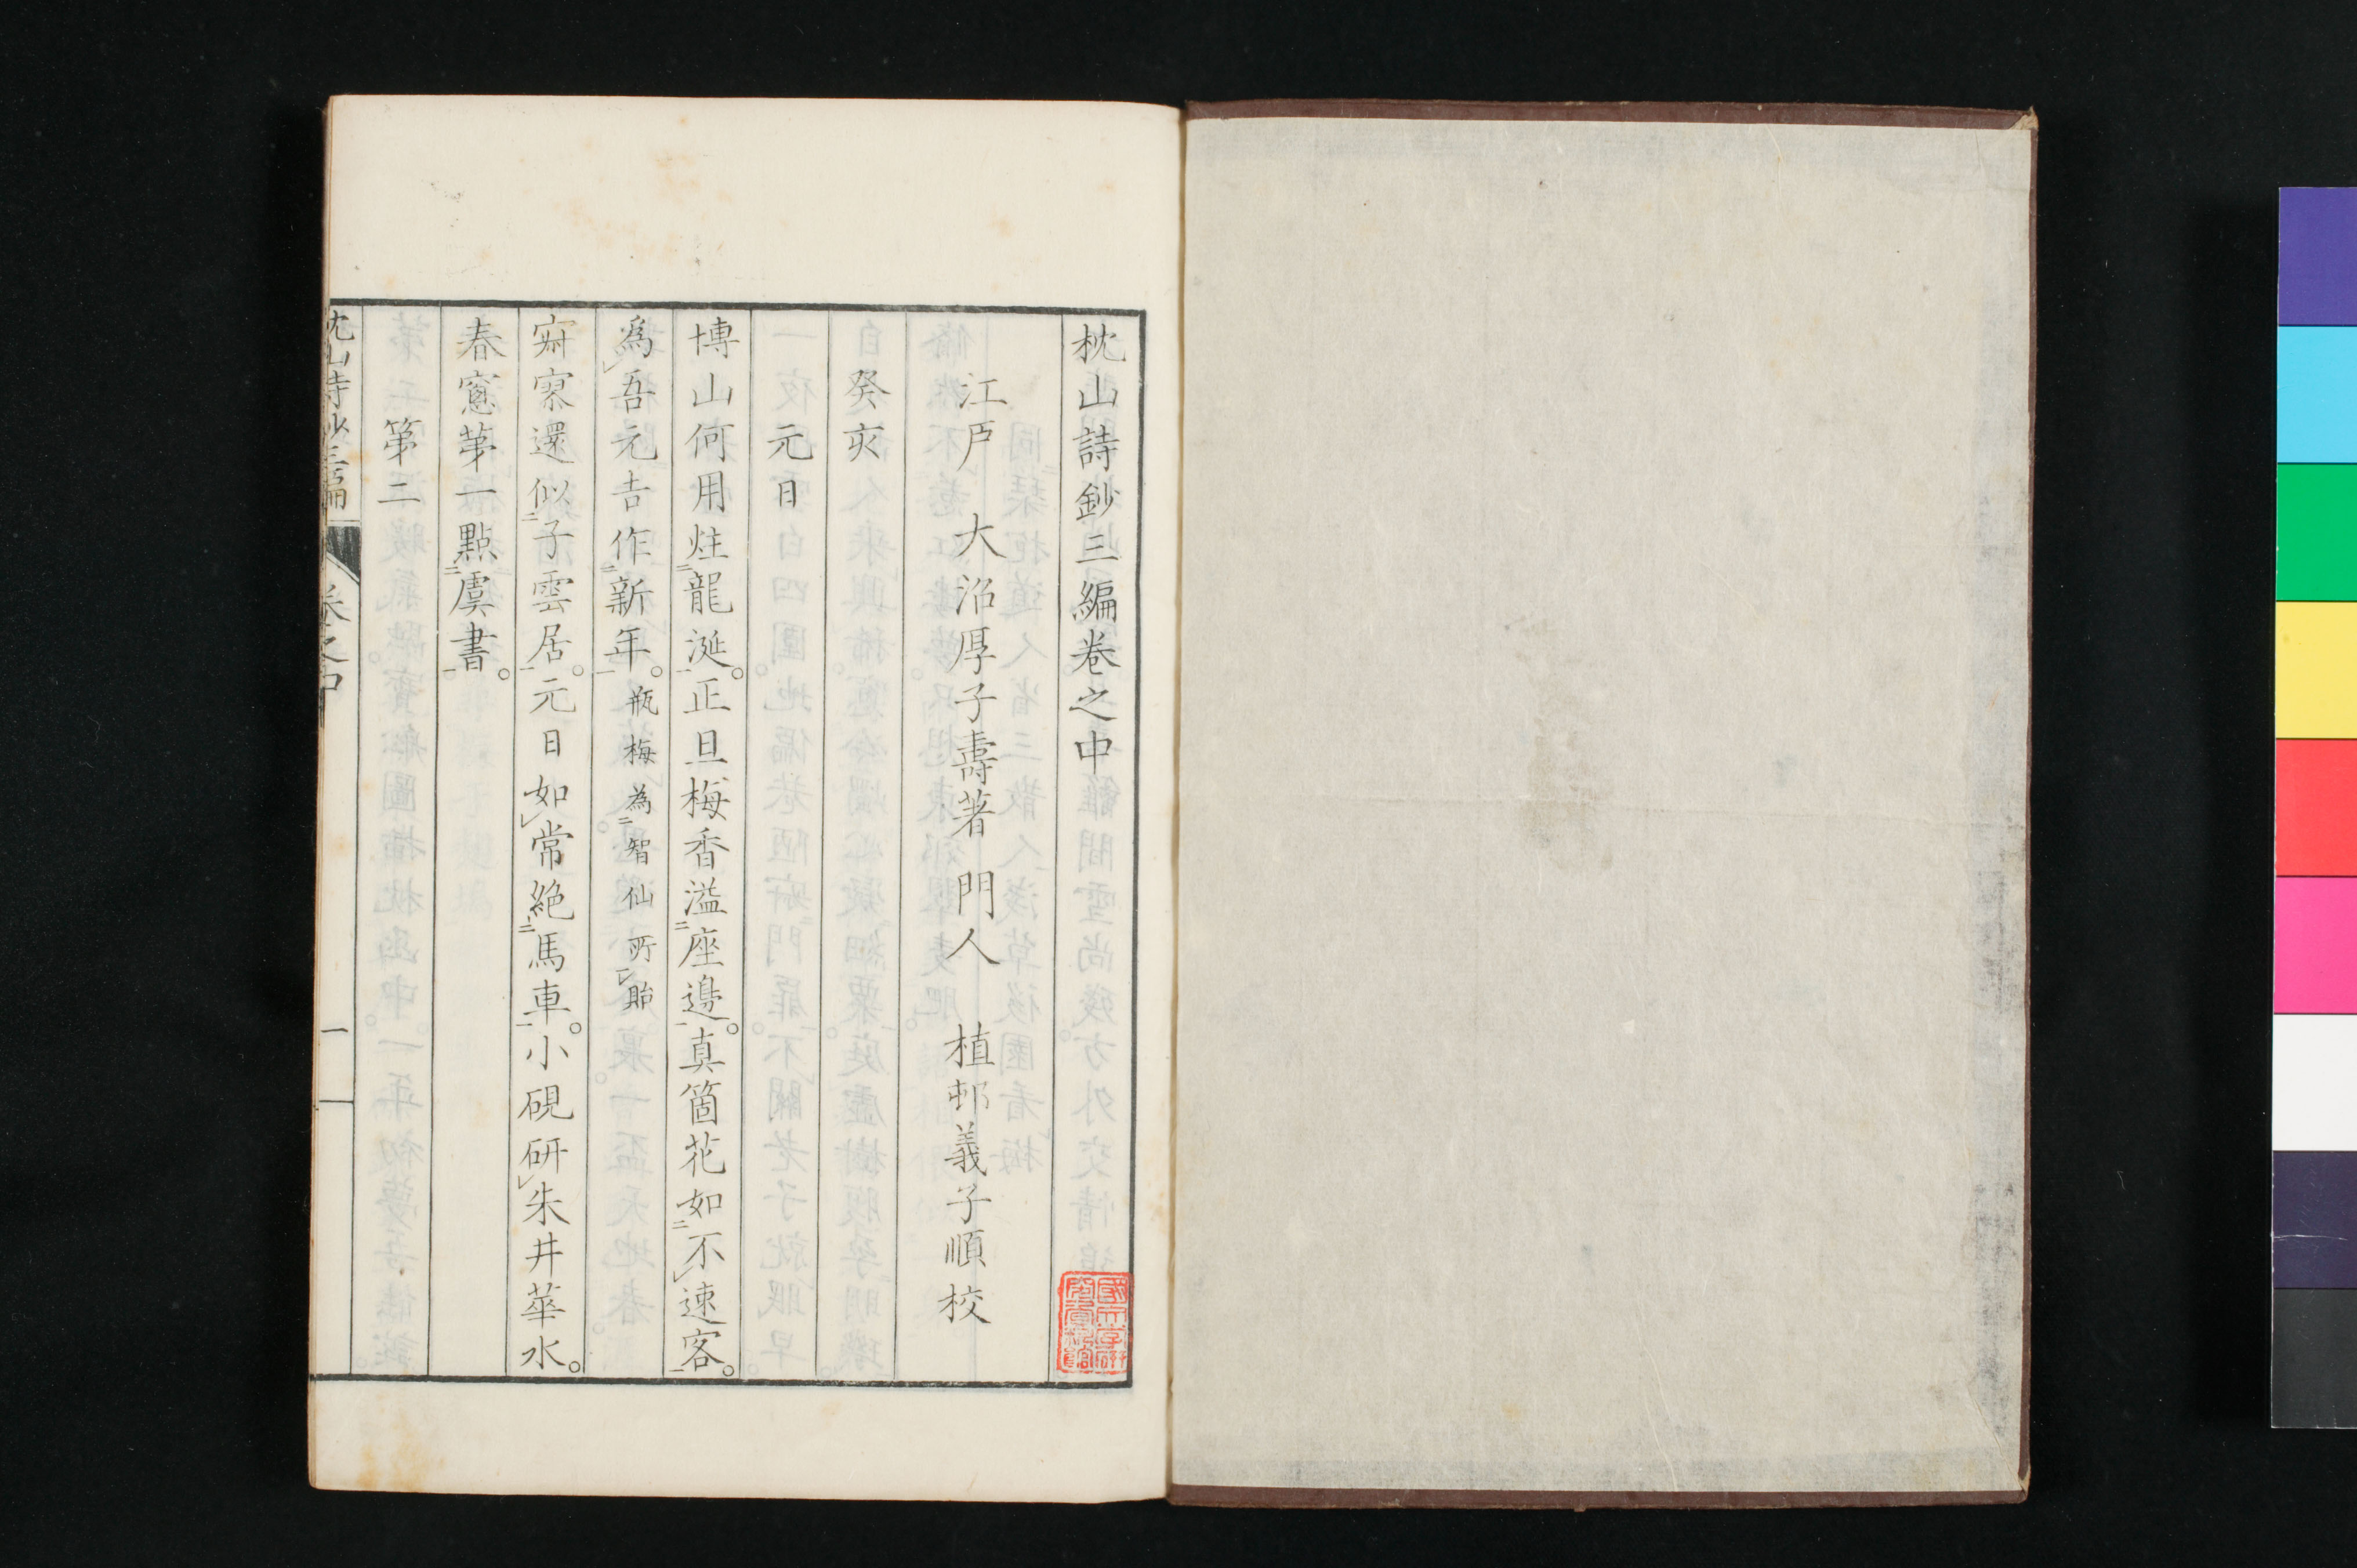 枕山詩鈔三編卷之中
江戸　大沼厚子壽著　門人　植邨義子順校
癸亥
元日
博山何用炷龍涎。正旦梅香溢座邊。真箇花如不速客。
爲吾元吉作新年。瓶梅為智仙所貽
寂寞還似子雲居。元日如常絶馬車。小硯研朱井華水。
春窻第一點虞書。
第二
枕山詩鈔三編　卷之中　一